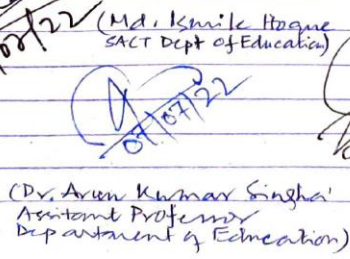 02/22
(Md. Ismile Hoque
SACT Dept of Education)
07/07/22
(Dr. Arun Kumar Singha
Assitant Professor
Department of Education)